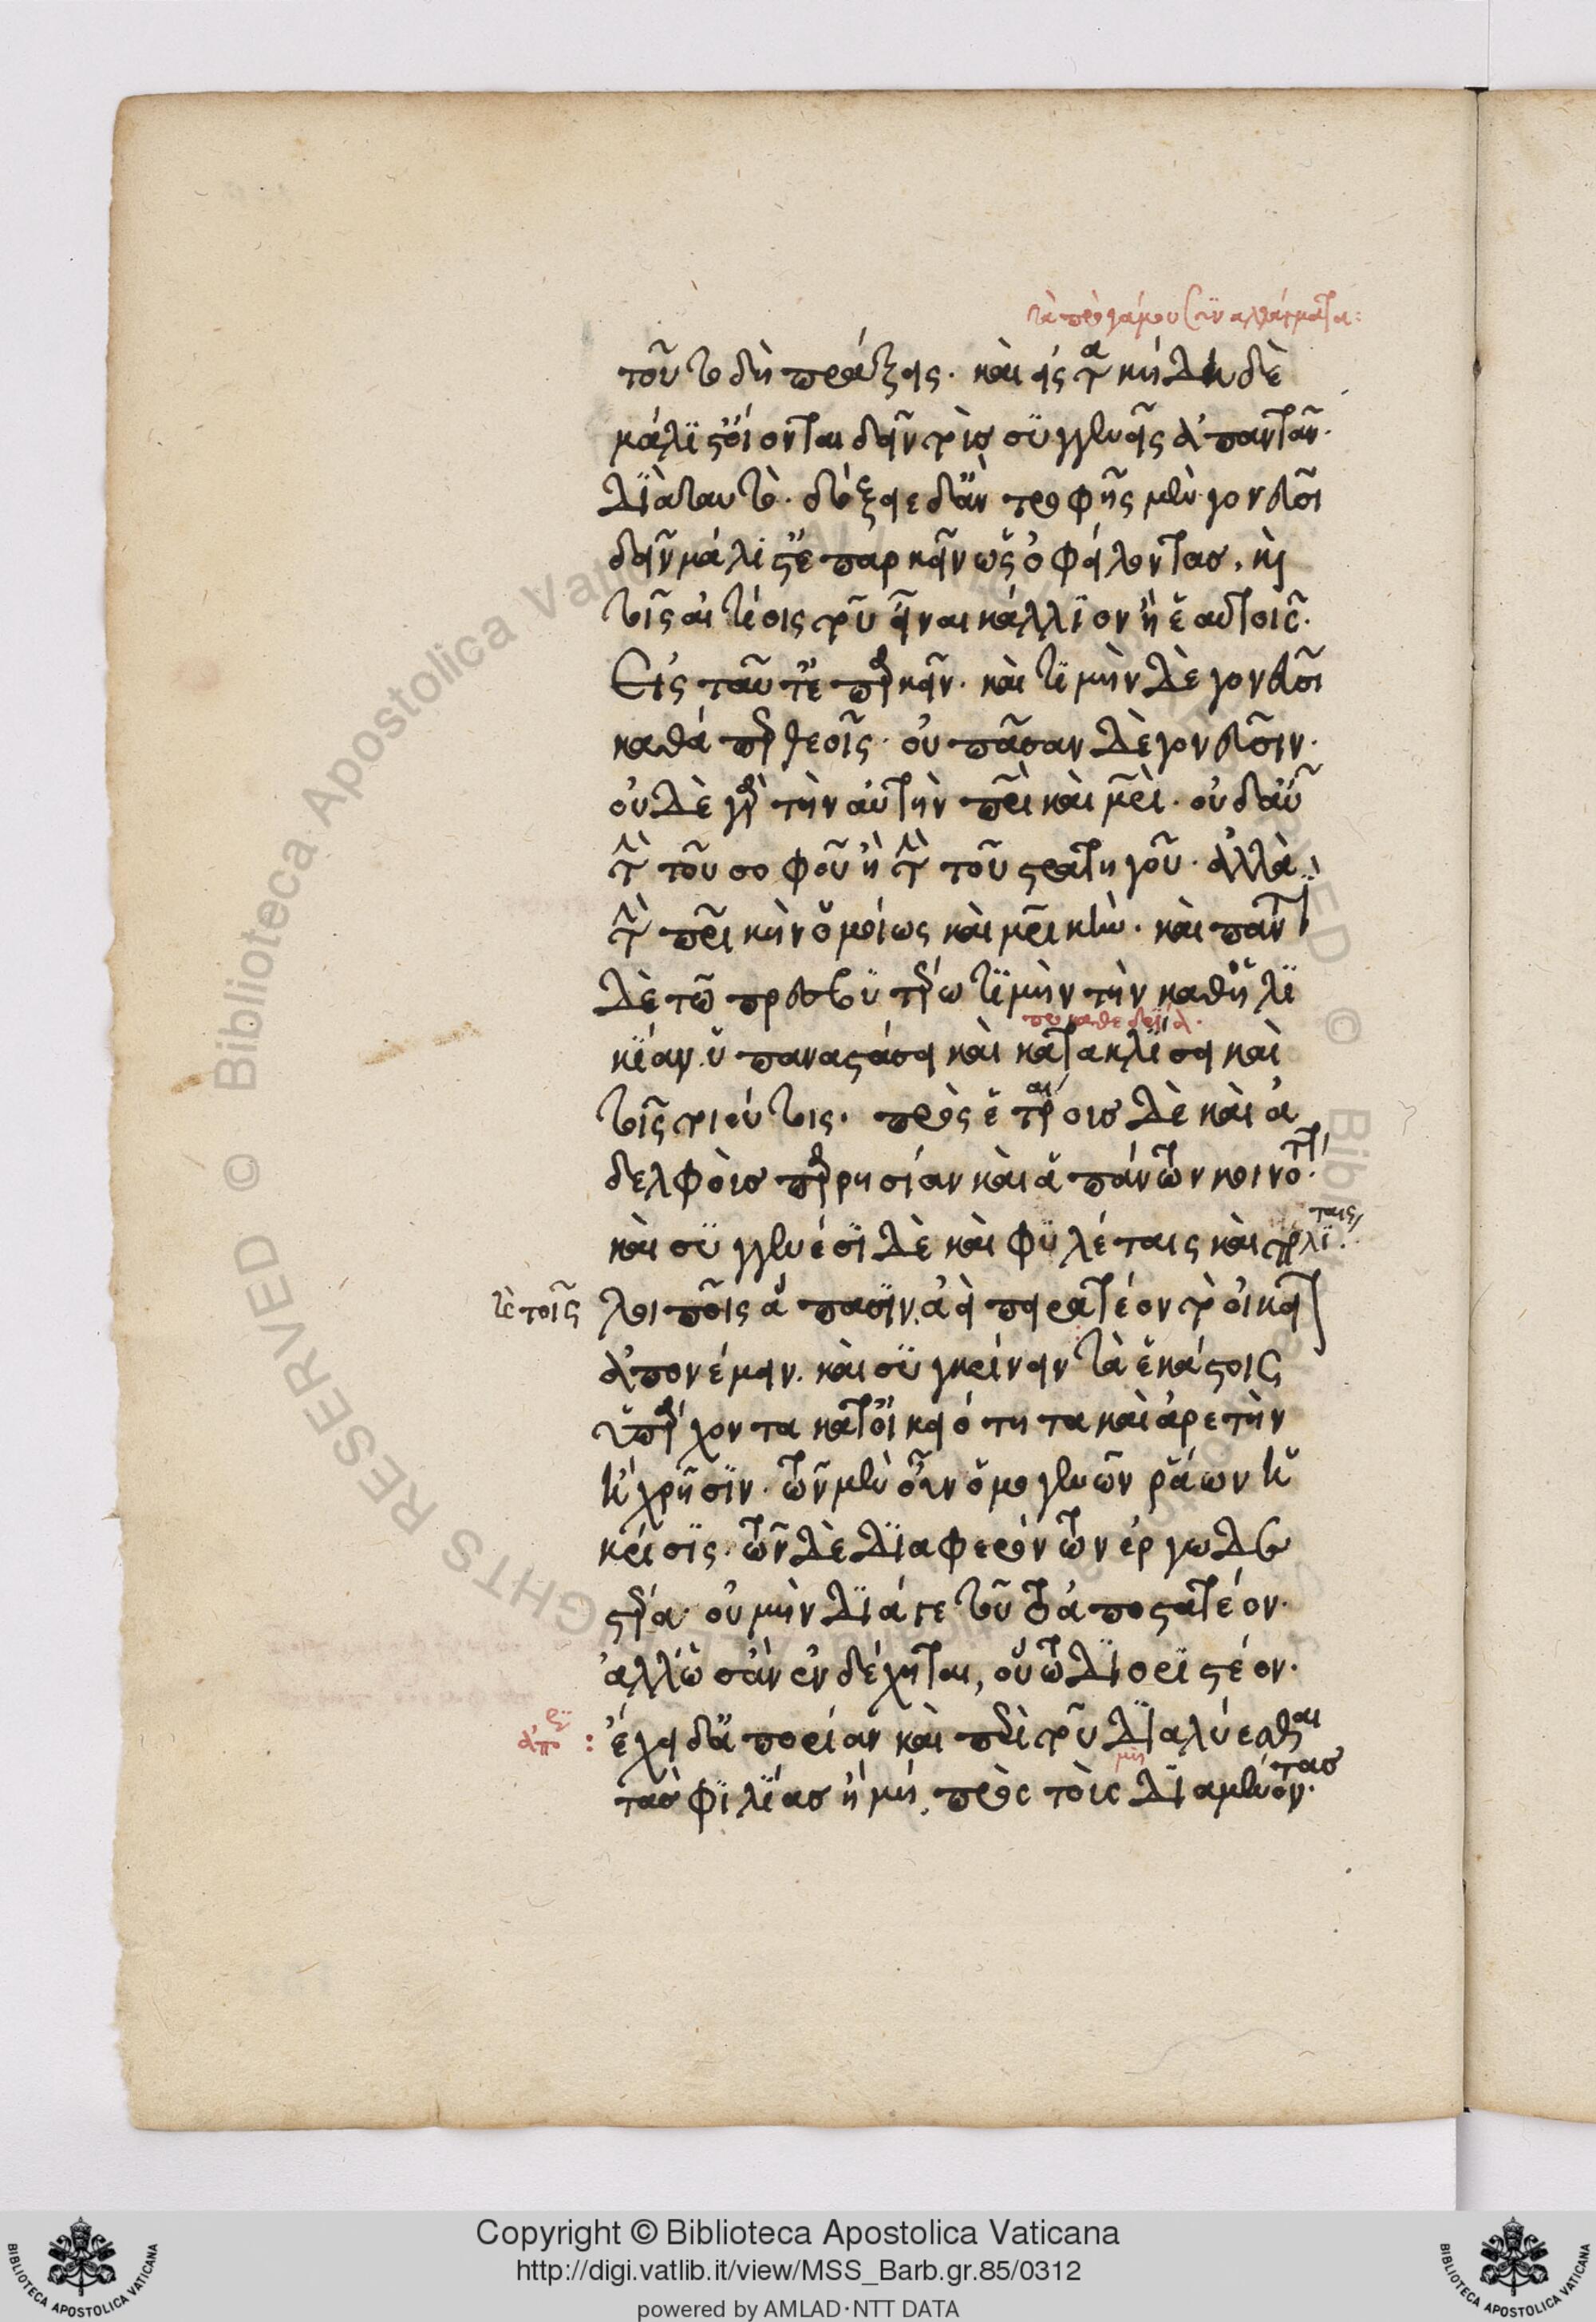 τὰ πρὸ γάμου συναλλάγματα:
τοῦτο δὴ πράξεις. καὶ εἰς τὰ κήδη δὲ
μάλιστ' οἴονται δεῖν τοὺς συγγενεῖς ἀπαντᾶν.
διὰ ταυτό. δόξειε δ' ἂν τροφῆς μὲν γονεῦσι
δεῖν μάλιστ' ἐπαρκεῖν ὡς ὀφείλοντας. καὶ
τοῖς αἰτίοις τοῦ εἶναι κάλλιον ἢ ἑαυτοῖς.
Εἰς ταῦτ' ἐπαρκεῖν. καὶ τιμὴν δὲ γονεῦσι
καθάπερ θεοῖς. οὐ πᾶσαν δὲ γονεῦσιν.
οὐδὲ γὰρ τὴν αὐτὴν πατρὶ καὶ μητρί. οὐδ' αὖ
τὴν τοῦ σοφοῦ ἢ τὴν τοῦ στρατηγοῦ. ἀλλὰ
τὴν πατρικὴν ὁμοίως καὶ μητρικήν. καὶ παντὶ
δὲ τῷ πρεσβυτέρῳ τιμὴν τὴν καθ' ἡλι
προκαθεδρίᾳ.
κίαν. ὑπαναστάσει καὶ κατακλίσει καὶ
τοῖς τοιούτοις. πρὸς ἑταίρους δὲ καὶ ἀ
δελφοὺς παρρησίαν καὶ ἁπάντων κοινότητα.
καὶ συγγενέσι δὲ καὶ φυλέταις καὶ πολίταις
καὶ τοῖς λοιποῖς ἅπασιν. ἀεὶ πειρατέον τὸ οἰκεῖον
ἀπονέμειν. καὶ συγκρίνειν τὰ ἑκάστοις
ὑπάρχοντα κατ' οἰκειότητα καὶ ἀρετὴν
ἢ χρῆσιν. τῶν μὲν οὖν ὁμογενῶν ῥᾴων ἡ
κρίσις. τῶν δὲ διαφερόντων ἐργωδε
στέρα. οὐ μὴν διά γε τοῦτο ἀποστατέον.
ἀλλ' ὡς ἂν ἐνδέχηται, οὕτω διοριστέον.
ἀπο : ἔχει δ' ἀπορίαν καὶ περὶ τοῦ διαλύεσθαι
μὴ
τὰς φιλίας ἢ μή. πρὸς τοὺς διαμένοντας